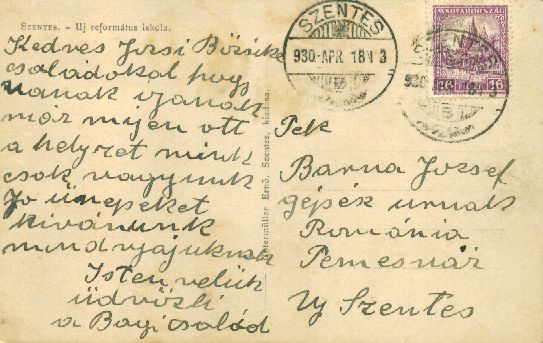 SZENTES. - Uj református iskola.
Kedves Josi Böriske
családokal hogy
vanak
már mijen ott
a helyzet mink
csok vagyunk
Jo ünepeket
kivánunk
mindnyájuknak
Isten velük
üdvözli
a Bagi család
termüller Ernő, Szentes, kiadása.
SZENTES
930-APR 18
MAGYARORSZÁG
16 16
SZENTES
930 18 3
Barna Jozsef
gépék urnak
Románia
Temesvár
Uj Szentes